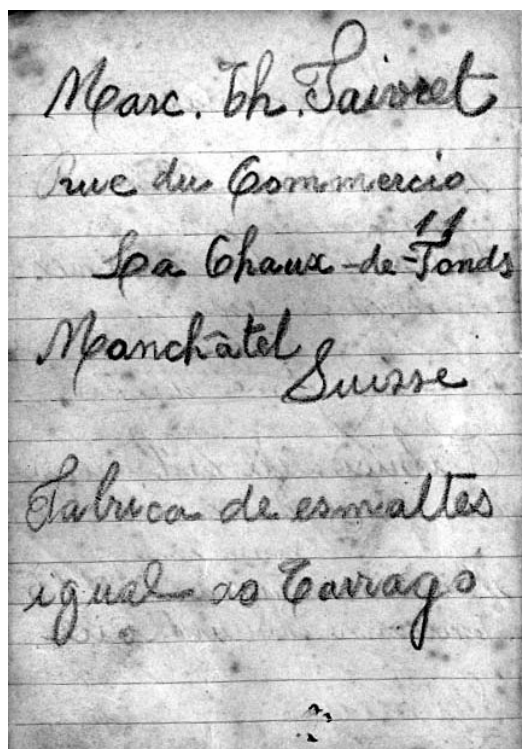 Marc. Th. Faivret
Rue du Commercio
11
La Chaux-de-Fonds
Manchâtel
Suisse
Fabrica de esmaltes
igual ao Tarragó